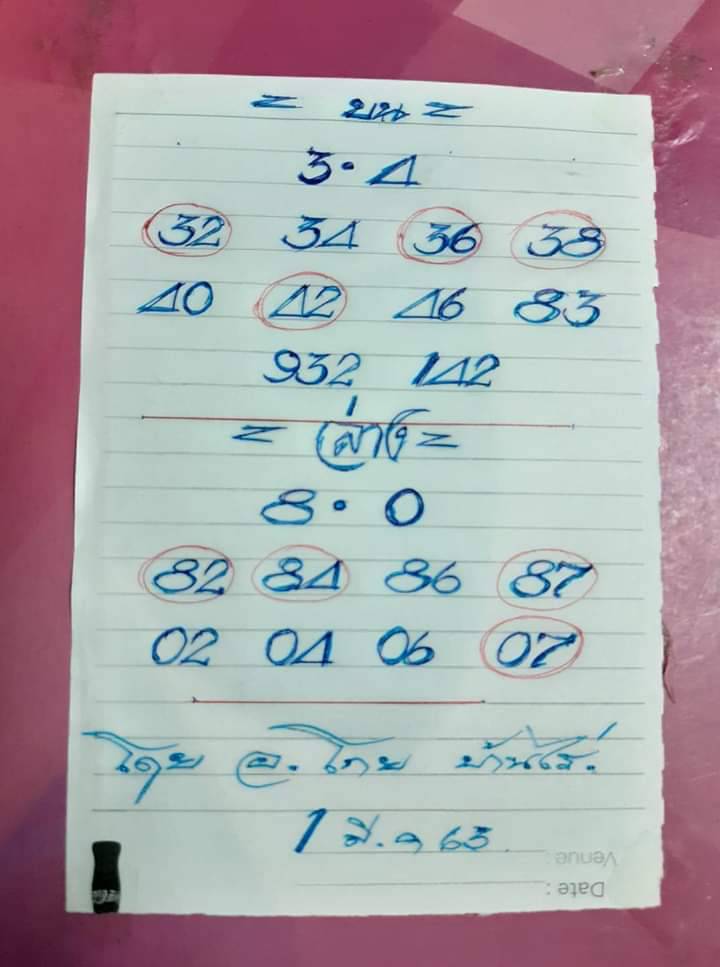 = บน =
3 · 4
32 34 36 38
40 42 46 83
932 142
= ล่าง =
8 · 0
82 84 86 87
02 04 06 07
โดย อ. โกย บ้านไร่.
1 มี.ค 63
Venue :
Date :